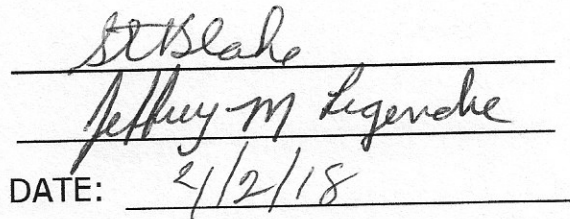 St Blake
Jeffrey M Legendre
DATE: 2/2/18